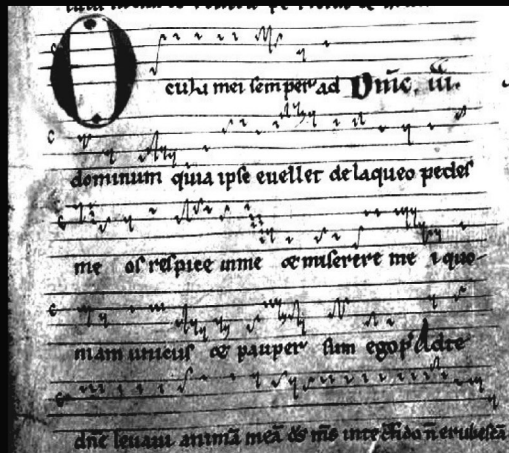 Oculi mei semper ad Dnic. iii.
dominum quia ipse evellet de laqueo pedes
me os respice inme & miserere me i quo-
niam unicus & pauper sum ego p̄s Ad te
dnē levavi animā meā ds ms inte cōfido n̄ erubescā